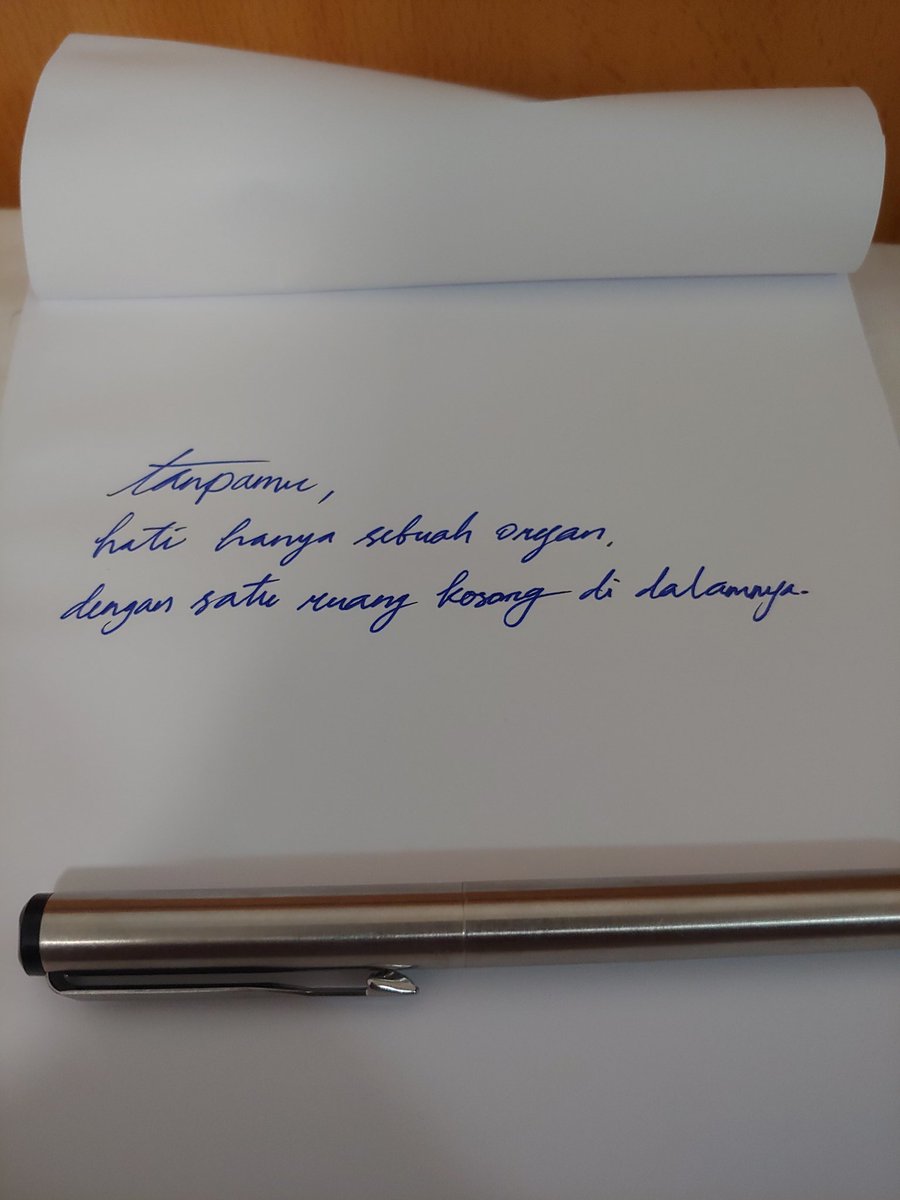 tanpamu,
hati hanya sebuah organ.
dengan satu ruang kosong di dalamnya.